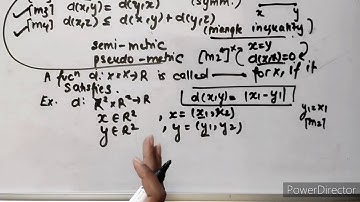 [m3] d(x,y) = d(y,x) (symm.)
x y
[m4] d(x,z) ≤ d(x,y) + d(y,z)
(triangle inequality)
semi-metric
pseudo-metric [m2]* x=y
d(x,y)=0
A fucn d: X×X→R is called for X, if it
Satisfies.
Ex. d: R²×R²→R d(x,y) = |x1-y1|
x∈R² , x = (x1,x2)
y∈R² , y = (y1,y2)
y1=x1
[m2]
PowerDirector